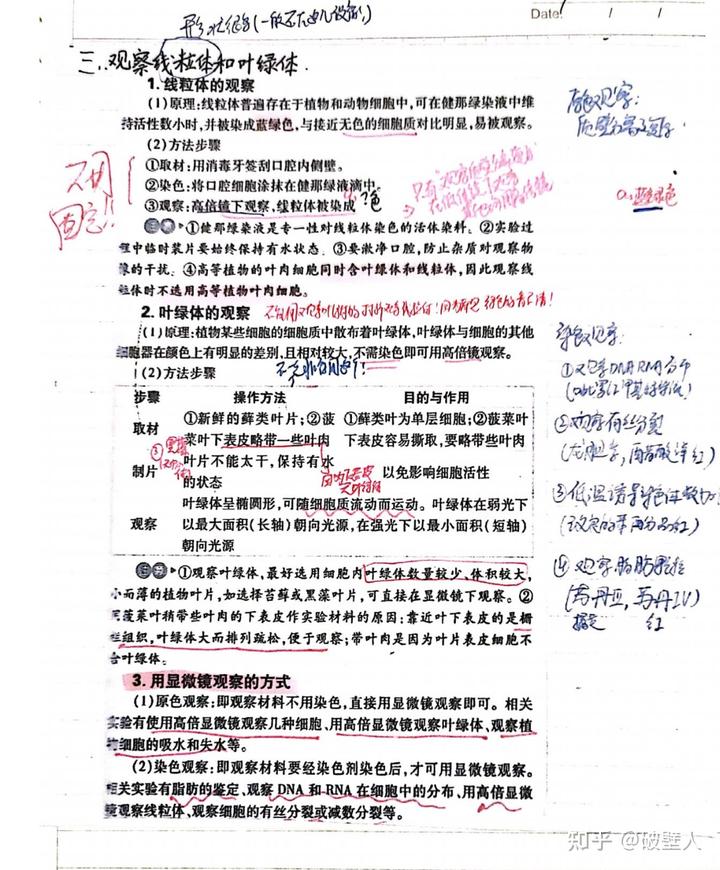 Date: / / /
三、观察线粒体和叶绿体.
1.线粒体的观察
(1)原理:线粒体普遍存在于植物和动物细胞中,可在健那绿染液中维
持活性数小时,并被染成蓝绿色,与接近无色的细胞质对比明显,易被观察。
(2)方法步骤
①取材:用消毒牙签刮口腔内侧壁。
②染色:将口腔细胞涂抹在健那绿液滴中。
③观察:高倍镜下观察,线粒体被染成 色
不用
固定!!
蓝绿色
①健那绿染液是专一性对线粒体染色的活体染料。②实验过
程中临时装片要始终保持有水状态。③要漱净口腔,防止杂质对观察物
像的干扰。④高等植物的叶肉细胞同时含叶绿体和线粒体,因此观察线
粒体时不选用高等植物叶肉细胞。
2.叶绿体的观察
(1)原理:植物某些细胞的细胞质中散布着叶绿体,叶绿体与细胞的其他
细胞器在颜色上有明显的差别,且相对较大,不需染色即可用高倍镜观察。
(2)方法步骤
步骤 操作方法 目的与作用
取材 ①新鲜的藓类叶片;②菠 ①藓类叶为单层细胞;②菠菜叶
菜叶下表皮略带一些叶肉 下表皮容易撕取,要略带些叶肉
制片 叶片不能太干,保持有水
的状态 以免影响细胞活性
观察 叶绿体呈椭圆形,可随细胞质流动而运动。叶绿体在弱光下
以最大面积(长轴)朝向光源,在强光下以最小面积(短轴)
朝向光源
①观察叶绿体,最好选用细胞内叶绿体数量较少,体积较大,
小而薄的植物叶片,如选择苔藓或黑藻叶片,可直接在显微镜下观察。②
用菠菜叶稍带些叶肉的下表皮作实验材料的原因:靠近叶下表皮的是栅
栏组织,叶绿体大而排列疏松,便于观察;带叶肉是因为叶片表皮细胞不
含叶绿体。
3.用显微镜观察的方式
(1)原色观察:即观察材料不用染色,直接用显微镜观察即可。相关
实验有使用高倍显微镜观察几种细胞、用高倍显微镜观察叶绿体、观察植
物细胞的吸水和失水等。
(2)染色观察:即观察材料要经染色剂染色后,才可用显微镜观察。
相关实验有脂肪的鉴定、观察DNA和RNA在细胞中的分布、用高倍显微
镜观察线粒体、观察细胞的有丝分裂或减数分裂等。
染色观察:
①观察DNA RNA分布
②观察有丝分裂
(龙胆紫,醋酸洋红)
④观察脂肪颗粒
(苏丹Ⅲ,苏丹IV)
红
知乎 @破壁人